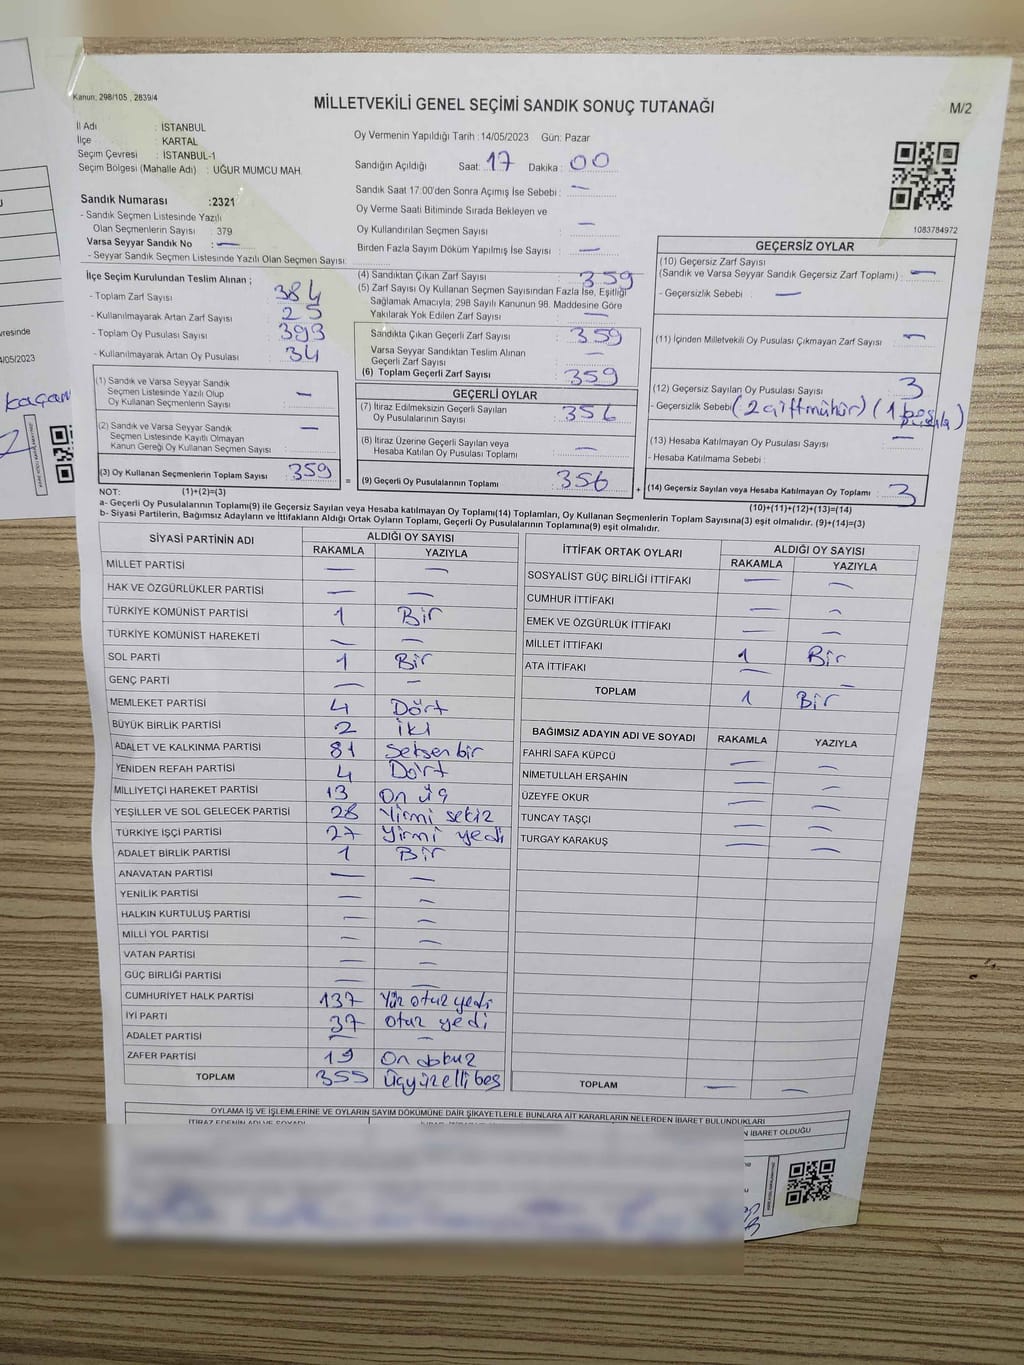 Kanun; 298/105 , 2839/4
MİLLETVEKİLİ GENEL SEÇİMİ SANDIK SONUÇ TUTANAĞI
M/2
İl Adı : İSTANBUL
İlçe : KARTAL
Seçim Çevresi : İSTANBUL-1
Seçim Bölgesi (Mahalle Adı) : UĞUR MUMCU MAH.
Oy Vermenin Yapıldığı Tarih : 14/05/2023 Gün: Pazar
Sandığın Açıldığı Saat: 17 Dakika : 00
Sandık Saat 17:00'den Sonra Açımış İse Sebebi : —
Oy Verme Saati Bitiminde Sırada Bekleyen ve
Oy Kullandırılan Seçmen Sayısı : —
Birden Fazla Sayım Döküm Yapılmış İse Sayısı : —
1083784972
Sandık Numarası : 2321
- Sandık Seçmen Listesinde Yazılı
Olan Seçmenlerin Sayısı : 379
Varsa Seyyar Sandık No : —
- Seyyar Sandık Seçmen Listesinde Yazılı Olan Seçmen Sayısı:
İlçe Seçim Kurulundan Teslim Alınan ;
- Toplam Zarf Sayısı : 384
- Kullanılmayarak Artan Zarf Sayısı : 25
- Toplam Oy Pusulası Sayısı : 393
- Kullanılmayarak Artan Oy Pusulası : 34
(1) Sandık ve Varsa Seyyar Sandık
Seçmen Listesinde Yazılı Olup
Oy Kullanan Seçmenlerin Sayısı : —
(2) Sandık ve Varsa Seyyar Sandık
Seçmen Listesinde Kayıtlı Olmayan
Kanun Gereği Oy Kullanan Seçmen Sayısı : —
(3) Oy Kullanan Seçmenlerin Toplam Sayısı : 359
(4) Sandıktan Çıkan Zarf Sayısı : 359
(5) Zarf Sayısı Oy Kullanan Seçmen Sayısından Fazla İse, Eşitliği
Sağlamak Amacıyla; 298 Sayılı Kanunun 98. Maddesine Göre
Yakılarak Yok Edilen Zarf Sayısı : —
Sandıkta Çıkan Geçerli Zarf Sayısı : 359
Varsa Seyyar Sandıktan Teslim Alınan
Geçerli Zarf Sayısı : —
(6) Toplam Geçerli Zarf Sayısı : 359
GEÇERLİ OYLAR
(7) İtiraz Edilmeksizin Geçerli Sayılan
Oy Pusulalarının Sayısı : 356
(8) İtiraz Üzerine Geçerli Sayılan veya
Hesaba Katılan Oy Pusulası Toplamı : —
= (9) Geçerli Oy Pusulalarının Toplamı : 356
GEÇERSİZ OYLAR
(10) Geçersiz Zarf Sayısı
(Sandık ve Varsa Seyyar Sandık Geçersiz Zarf Toplamı) : —
- Geçersizlik Sebebi : —
(11) İçinden Milletvekili Oy Pusulası Çıkmayan Zarf Sayısı : —
(12) Geçersiz Sayılan Oy Pusulası Sayısı : 3
- Geçersizlik Sebebi : (2 çift mühür) (1 boş pusula)
(13) Hesaba Katılmayan Oy Pusulası Sayısı : —
- Hesaba Katılmama Sebebi :
+ (14) Geçersiz Sayılan veya Hesaba Katılmayan Oy Toplamı : 3
NOT: (1)+(2)=(3)
(10)+(11)+(12)+(13)=(14)
a- Geçerli Oy Pusulalarının Toplamı(9) ile Geçersiz Sayılan veya Hesaba katılmayan Oy Toplamı(14) Toplamları, Oy Kullanan Seçmenlerin Toplam Sayısına(3) eşit olmalıdır. (9)+(14)=(3)
b- Siyasi Partilerin, Bağımsız Adayların ve İttifakların Aldığı Ortak Oyların Toplamı, Geçerli Oy Pusulalarının Toplamına(9) eşit olmalıdır.
SİYASİ PARTİNİN ADI ALDIĞI OY SAYISI
RAKAMLA YAZIYLA
MİLLET PARTİSİ — —
HAK VE ÖZGÜRLÜKLER PARTİSİ — —
TÜRKİYE KOMÜNİST PARTİSİ 1 Bir
TÜRKİYE KOMÜNİST HAREKETİ — —
SOL PARTİ 1 Bir
GENÇ PARTİ — —
MEMLEKET PARTİSİ 4 Dört
BÜYÜK BİRLİK PARTİSİ 2 iki
ADALET VE KALKINMA PARTİSİ 81 Seksen bir
YENİDEN REFAH PARTİSİ 4 Dört
MİLLİYETÇİ HAREKET PARTİSİ 13 On üç
YEŞİLLER VE SOL GELECEK PARTİSİ 28 Yirmi sekiz
TÜRKİYE İŞÇİ PARTİSİ 27 Yirmi yedi
ADALET BİRLİK PARTİSİ 1 Bir
ANAVATAN PARTİSİ — —
YENİLİK PARTİSİ — —
HALKIN KURTULUŞ PARTİSİ — —
MİLLİ YOL PARTİSİ — —
VATAN PARTİSİ — —
GÜÇ BİRLİĞİ PARTİSİ — —
CUMHURİYET HALK PARTİSİ 137 Yüz otuz yedi
İYİ PARTİ 37 otuz yedi
ADALET PARTİSİ — —
ZAFER PARTİSİ 19 On dokuz
TOPLAM 355 Üçyüzellibeş
İTTİFAK ORTAK OYLARI ALDIĞI OY SAYISI
RAKAMLA YAZIYLA
SOSYALİST GÜÇ BİRLİĞİ İTTİFAKI — —
CUMHUR İTTİFAKI — —
EMEK VE ÖZGÜRLÜK İTTİFAKI — —
MİLLET İTTİFAKI 1 Bir
ATA İTTİFAKI — —
TOPLAM 1 Bir
BAĞIMSIZ ADAYIN ADI VE SOYADI RAKAMLA YAZIYLA
FAHRİ SAFA KÜPCÜ — —
NİMETULLAH ERŞAHİN — —
ÜZEYFE OKUR — —
TUNCAY TAŞÇI — —
TURGAY KARAKUŞ — —
TOPLAM — —
OYLAMA İŞ VE İŞLEMLERİNE VE OYLARIN SAYIM DÖKÜMÜNE DAİR ŞİKAYETLERLE BUNLARA AİT KARARLARIN NELERDEN İBARET BULUNDUKLARI
N İBARET OLDUĞU